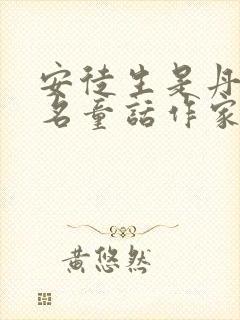 安徒生是丹
名童話作家
黃悠然